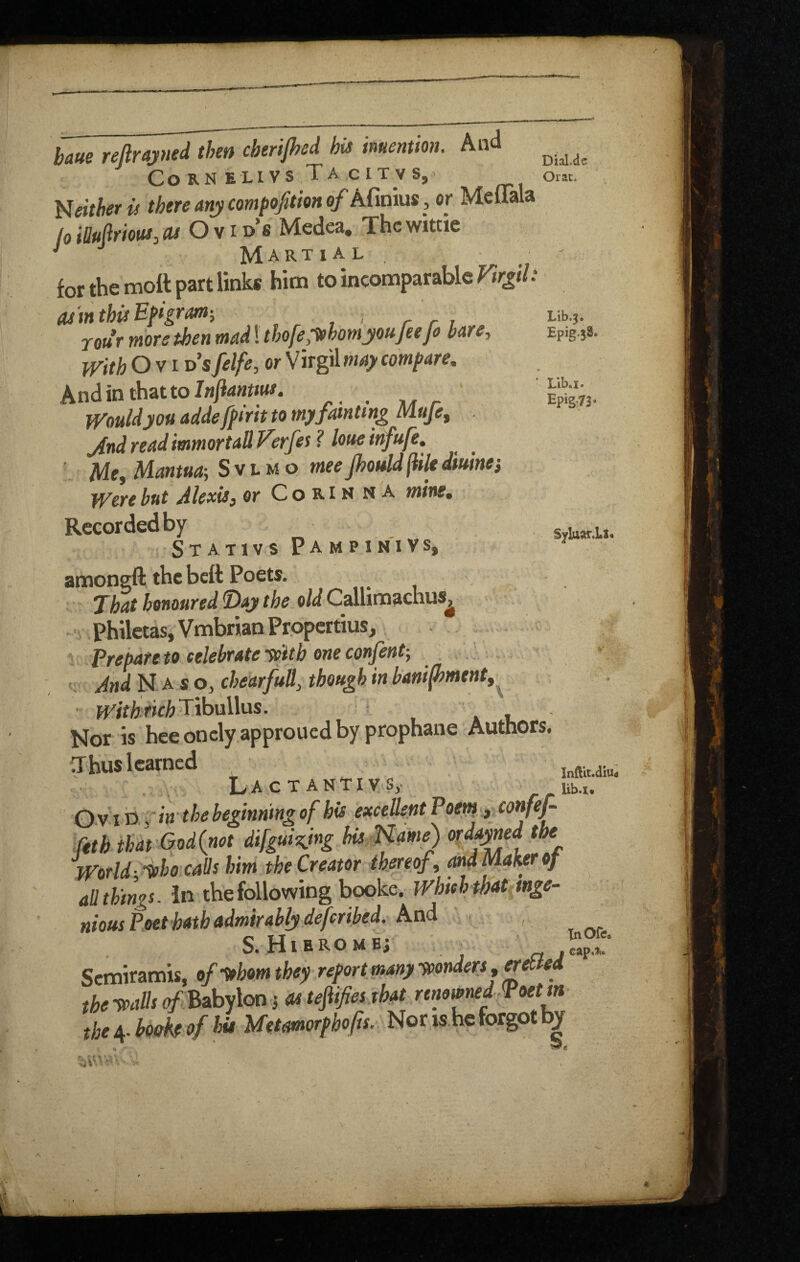 haue reſtrayned then cheriſhed his inuention. And
CORNELIVS TACITVS,
Dial.de
Orat.
Neither is there any compoſition of Aſinius, or Meſſala
ſo illuſtrious, as OVID's Medea. The wittie
MARTIAL
for the moſt part links him to incomparable Virgil:
as in this Epigram;
Your more then mad! thoſe, whom you ſee ſo bare,
Lib.3.
Epig.38.
With OVID's ſelfe, or Virgil may compare.
And in that to Inſtantius.
Lib.1.
Epig.73.
Would you adde ſpirit to my fainting Muſe,
And read immortall Verſes? loue infuſe.
Me, Mantua; SVLMO mee ſhould ſtile diuine;
Were but Alexis, or CORINNA mine.
Recorded by
STATIVS PAMPINIVS,
Syluar.L1.
amongſt the beſt Poets.
That honoured Day the old Callimachus,
Philetas, Vmbrian Propertius,
Prepare to celebrate with one conſent;
And NASO, chearfull, though in baniſhment,
With rich Tibullus.
Nor is hee onely approued by prophane Authors.
Thus learned
LACTANTIVS,
Inſtit.diu.
lib.1.
OVID, in the beginning of his excellent Poem, confeſ-
ſeth that God (not diſguizing his Name) ordayned the
World; who calls him the Creator thereof, and Maker of
all things. In the following booke. Which that inge-
nious Poet hath admirably deſcribed. And
S. HIEROME;
In Oſe.
cap.2.
Semiramis, of whom they report many wonders, erected
the walls of Babylon; as teſtifies that renowned Poet in
the 4. booke of his Metamorphoſis. Nor is he forgot by
S.